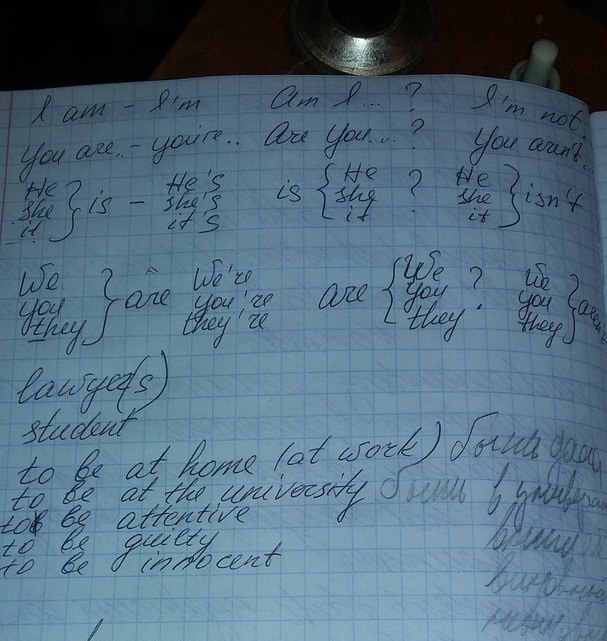 I am - I'm Am I... ? I'm not.
You are.. - you're.. Are You...? You aren't...
He He's He He
she } is - she's is { she ? she } isn't
it it's it it
We We're We We
you } are you're are { you ? you } aren't
they they're they they
lawyer(s)
student
to be at home (at work) быть дома
to be at the university быть в универси
to be attentive
to be guilty
to be innocent